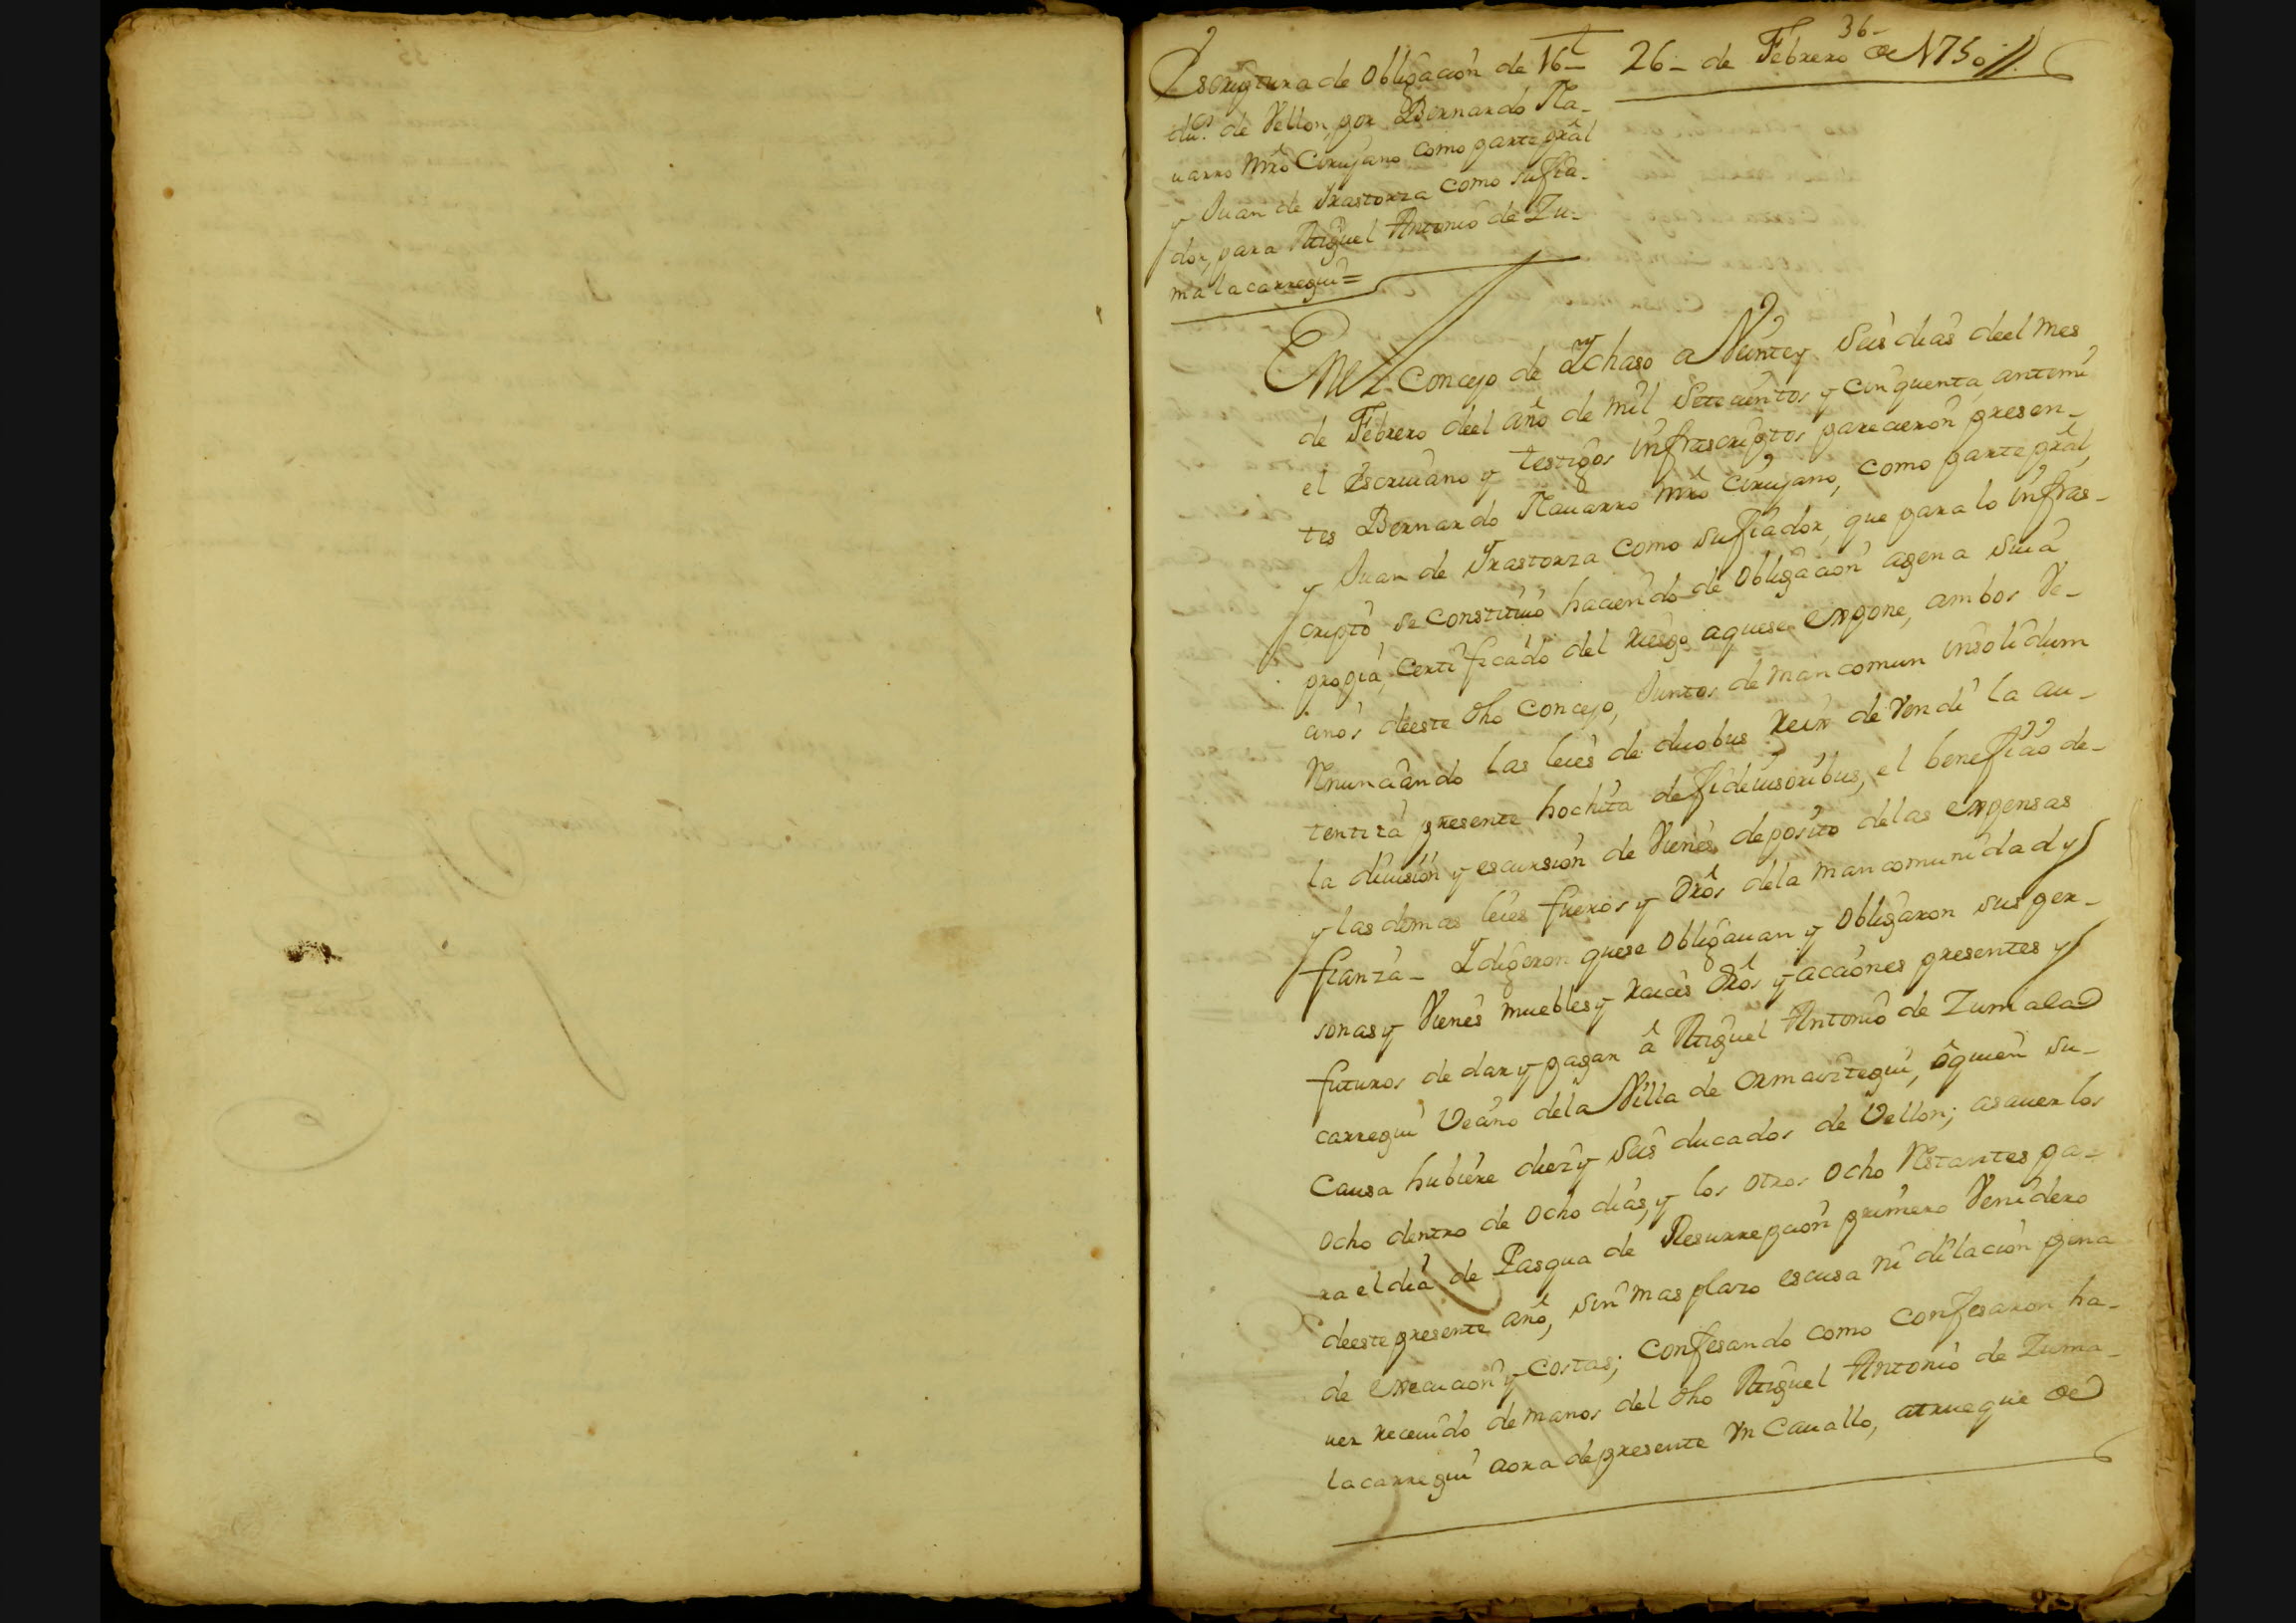 36-
Escriptura de Obligación de 16-
du.s de Vellon, por Bernardo Na-
uarro Mro Cirujano como parte pral
y Juan de Yrastorza como sufia-
dor, para Miguel Antonio de Zu-
malacarregui=
26- de Febrero de 1750//.
En el Concejo de Ychaso a Veinte y Seis dias deel mes
de Febrero deel año de mil Setecientos y cinquenta, antemi
el Escriuano y testigos infrascriptos parecieron presen-
tes Bernardo Nauarro Mro Cirujano, como parte pral,
y Juan de Yrastorza como sufiador, que para lo infras-
cripto se constituió haciendo de obligacion agena suia
propia, certificado del riesgo aquese expone, ambos Ve-
cinos deeste dho Concejo, Juntos de mancomun insolidum
Renunciando las leies de duobus Reix de Vendi la au-
tentica presente hochita de fideiusoribus, el beneficio de-
la diuision y escursion de Vienes, deposito delas expensas
y las demas leies fueros y dros dela mancomunidad y
fianza- Y digeron quese obligauan y obligaron sus per-
sonas y Vienes muebles y raices dros y acciones presentes y
futuros de dar y pagar â Miguel Antonio de Zumala
carregui Vecino dela Villa de Ormaiztegui, ô quien su-
causa hubiere diez y Seis ducados de Vellon; asauer los
ocho dentro de ocho dias, y los otros ocho Restantes pa-
ra el dia de Pasqua de Resurrepcion primero Venidero
deeste presente año, sin mas plazo escusa ni dilacion pena
de execucion y costas; confesando como confesaron ha-
uer receuido de manos del dho Miguel Antonio de Zuma-
lacarregui aora depresente Vn Cauallo, atrueque de